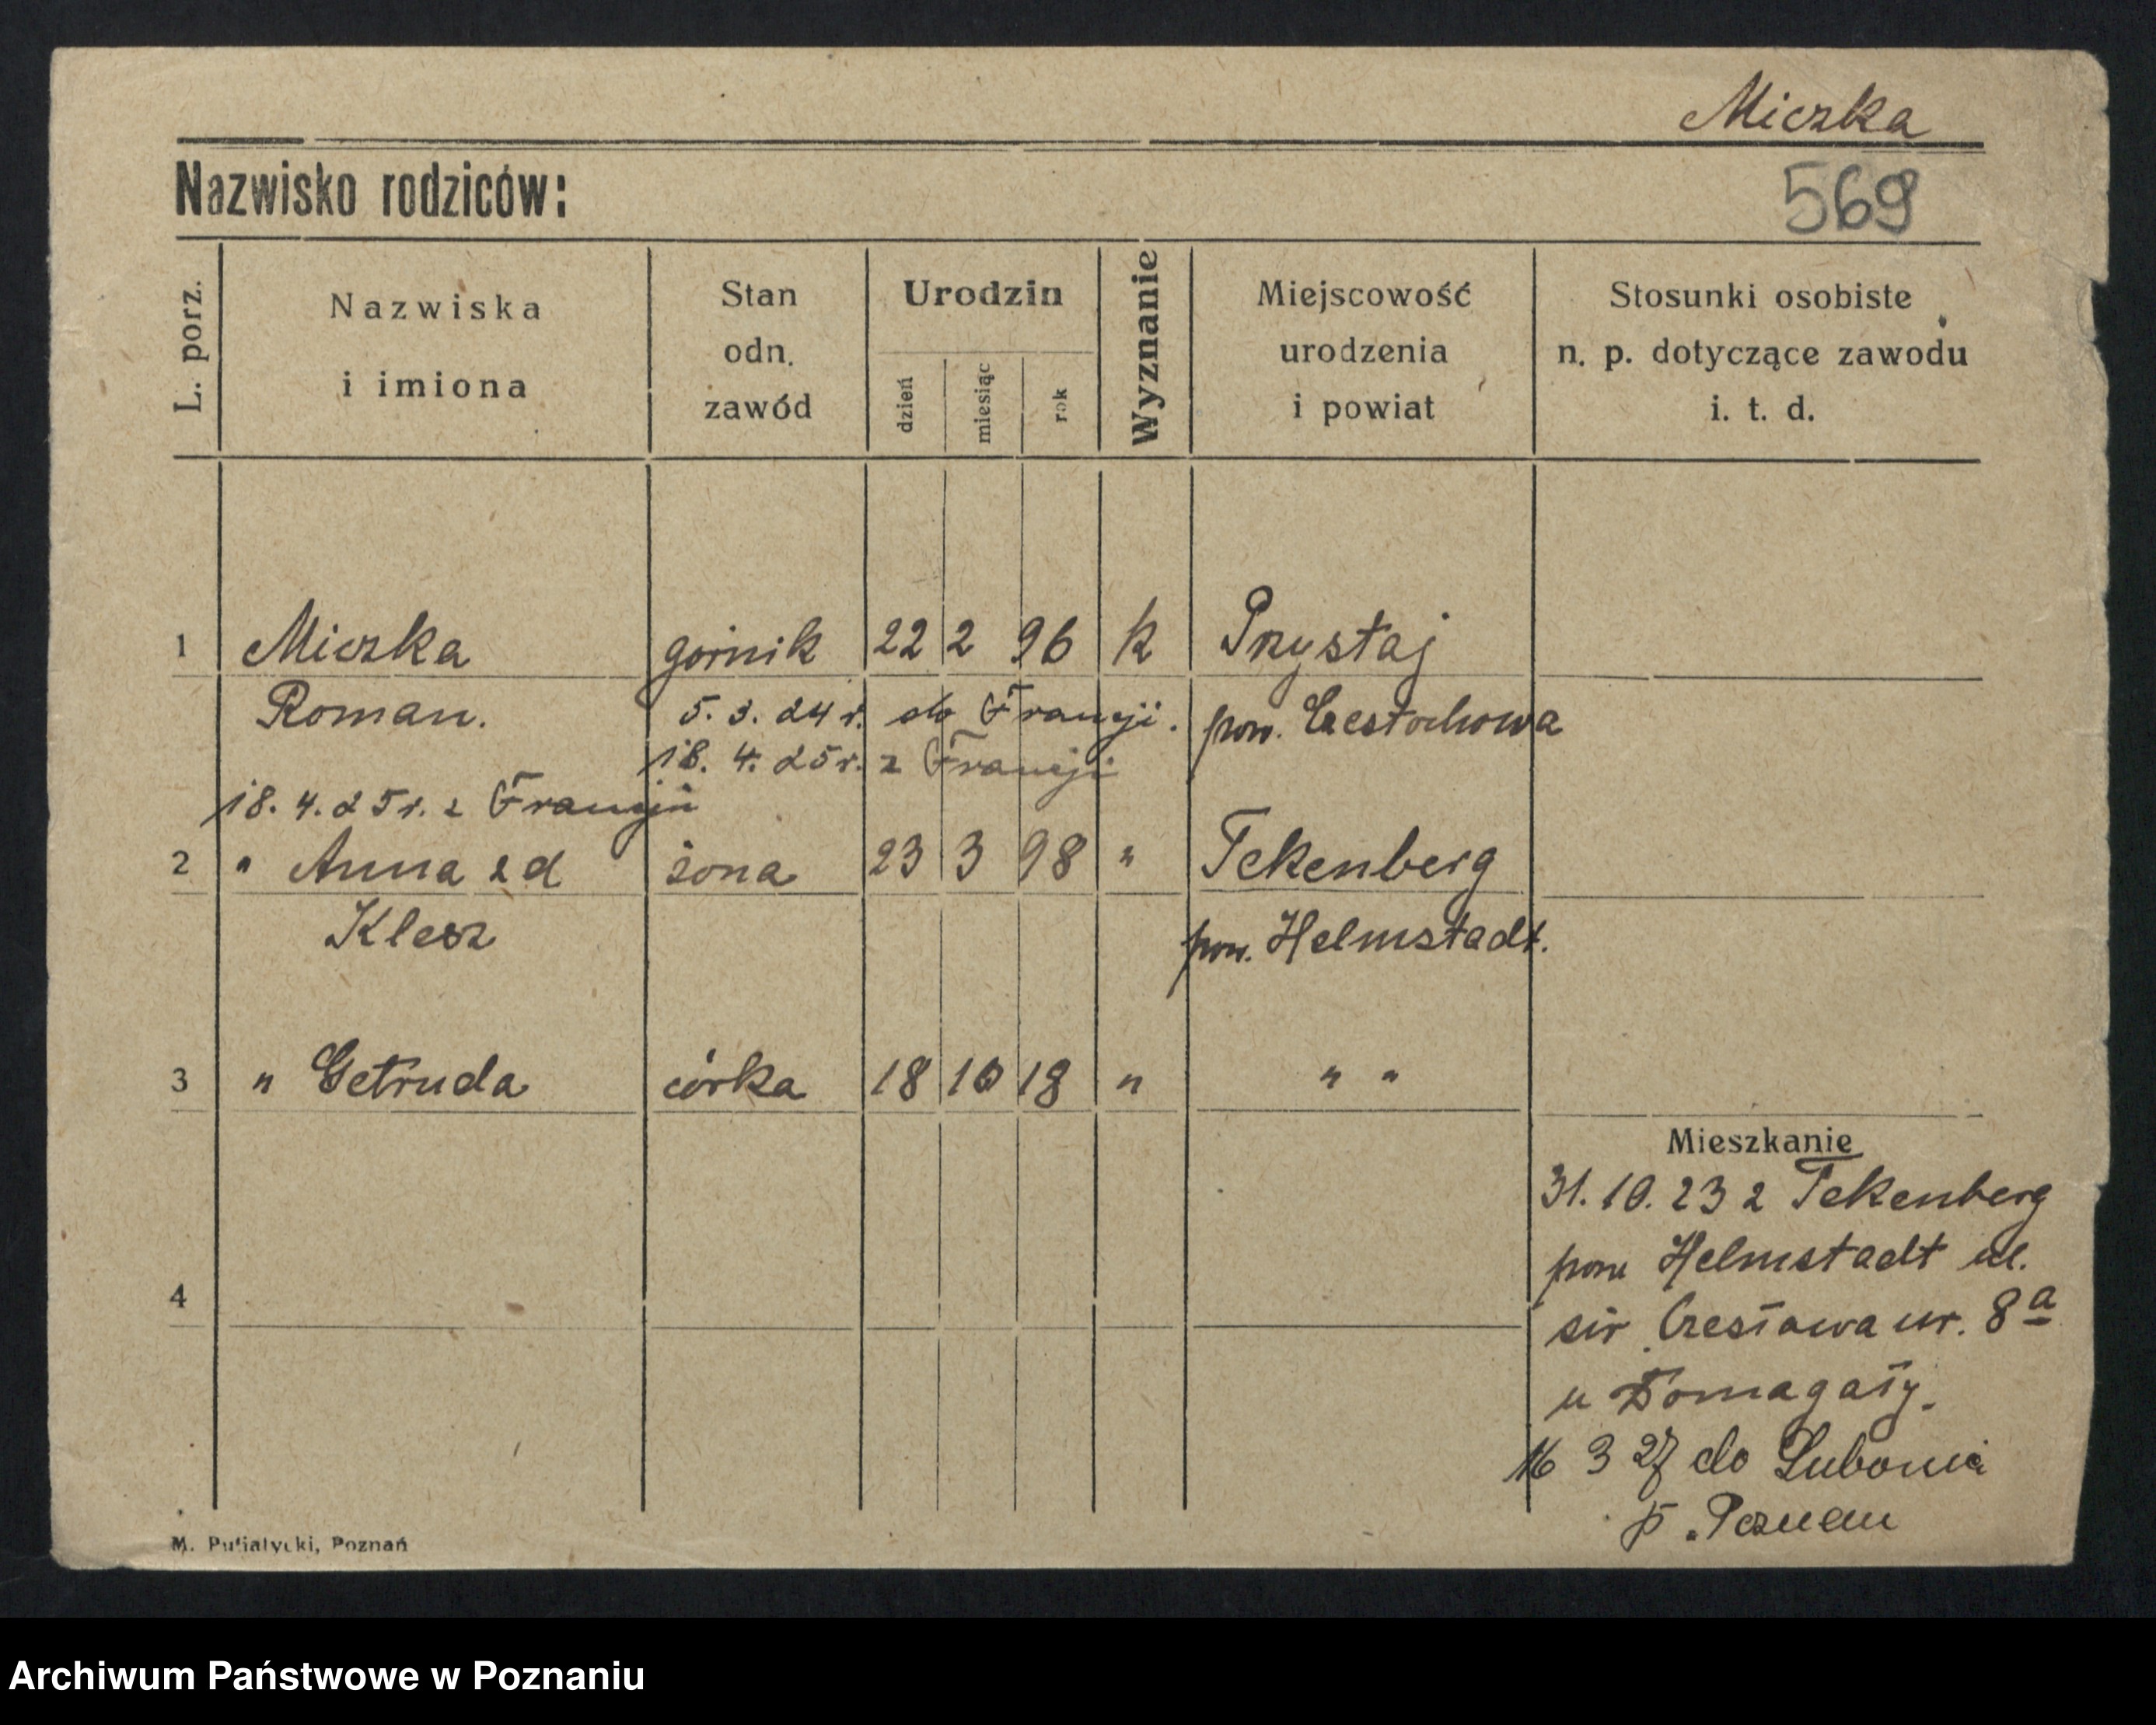 Miczka
Nazwisko rodziców:
569
L. porz.
Nazwiska
i imiona
Stan
odn.
zawód
Urodzin
dzień
miesiąc
rok
Wyznanie
Miejscowość
urodzenia
i powiat
Stosunki osobiste
n. p. dotyczące zawodu
i. t. d.
1 Miczka górnik 22 2 96 k Przystaj
Roman. 5. 3. 24 r. do Francji. pow. Częstochowa
18. 4. 25 r. z Francji
18. 4. 25 r. z Francji
2 " Anna z d żona 23 3 98 " Tekenberg
Klesz pow. Helmstadt.
3 " Getruda córka 18 10 18 " " "
Mieszkanie
31. 10. 23 z Tekenberg
pow Helmstadt ul.
św. Czesława nr. 8a
4
u Domagały.
16 3 27 do Lubonia
p. Poznań
M. Putiatycki, Poznań
Archiwum Państwowe w Poznaniu